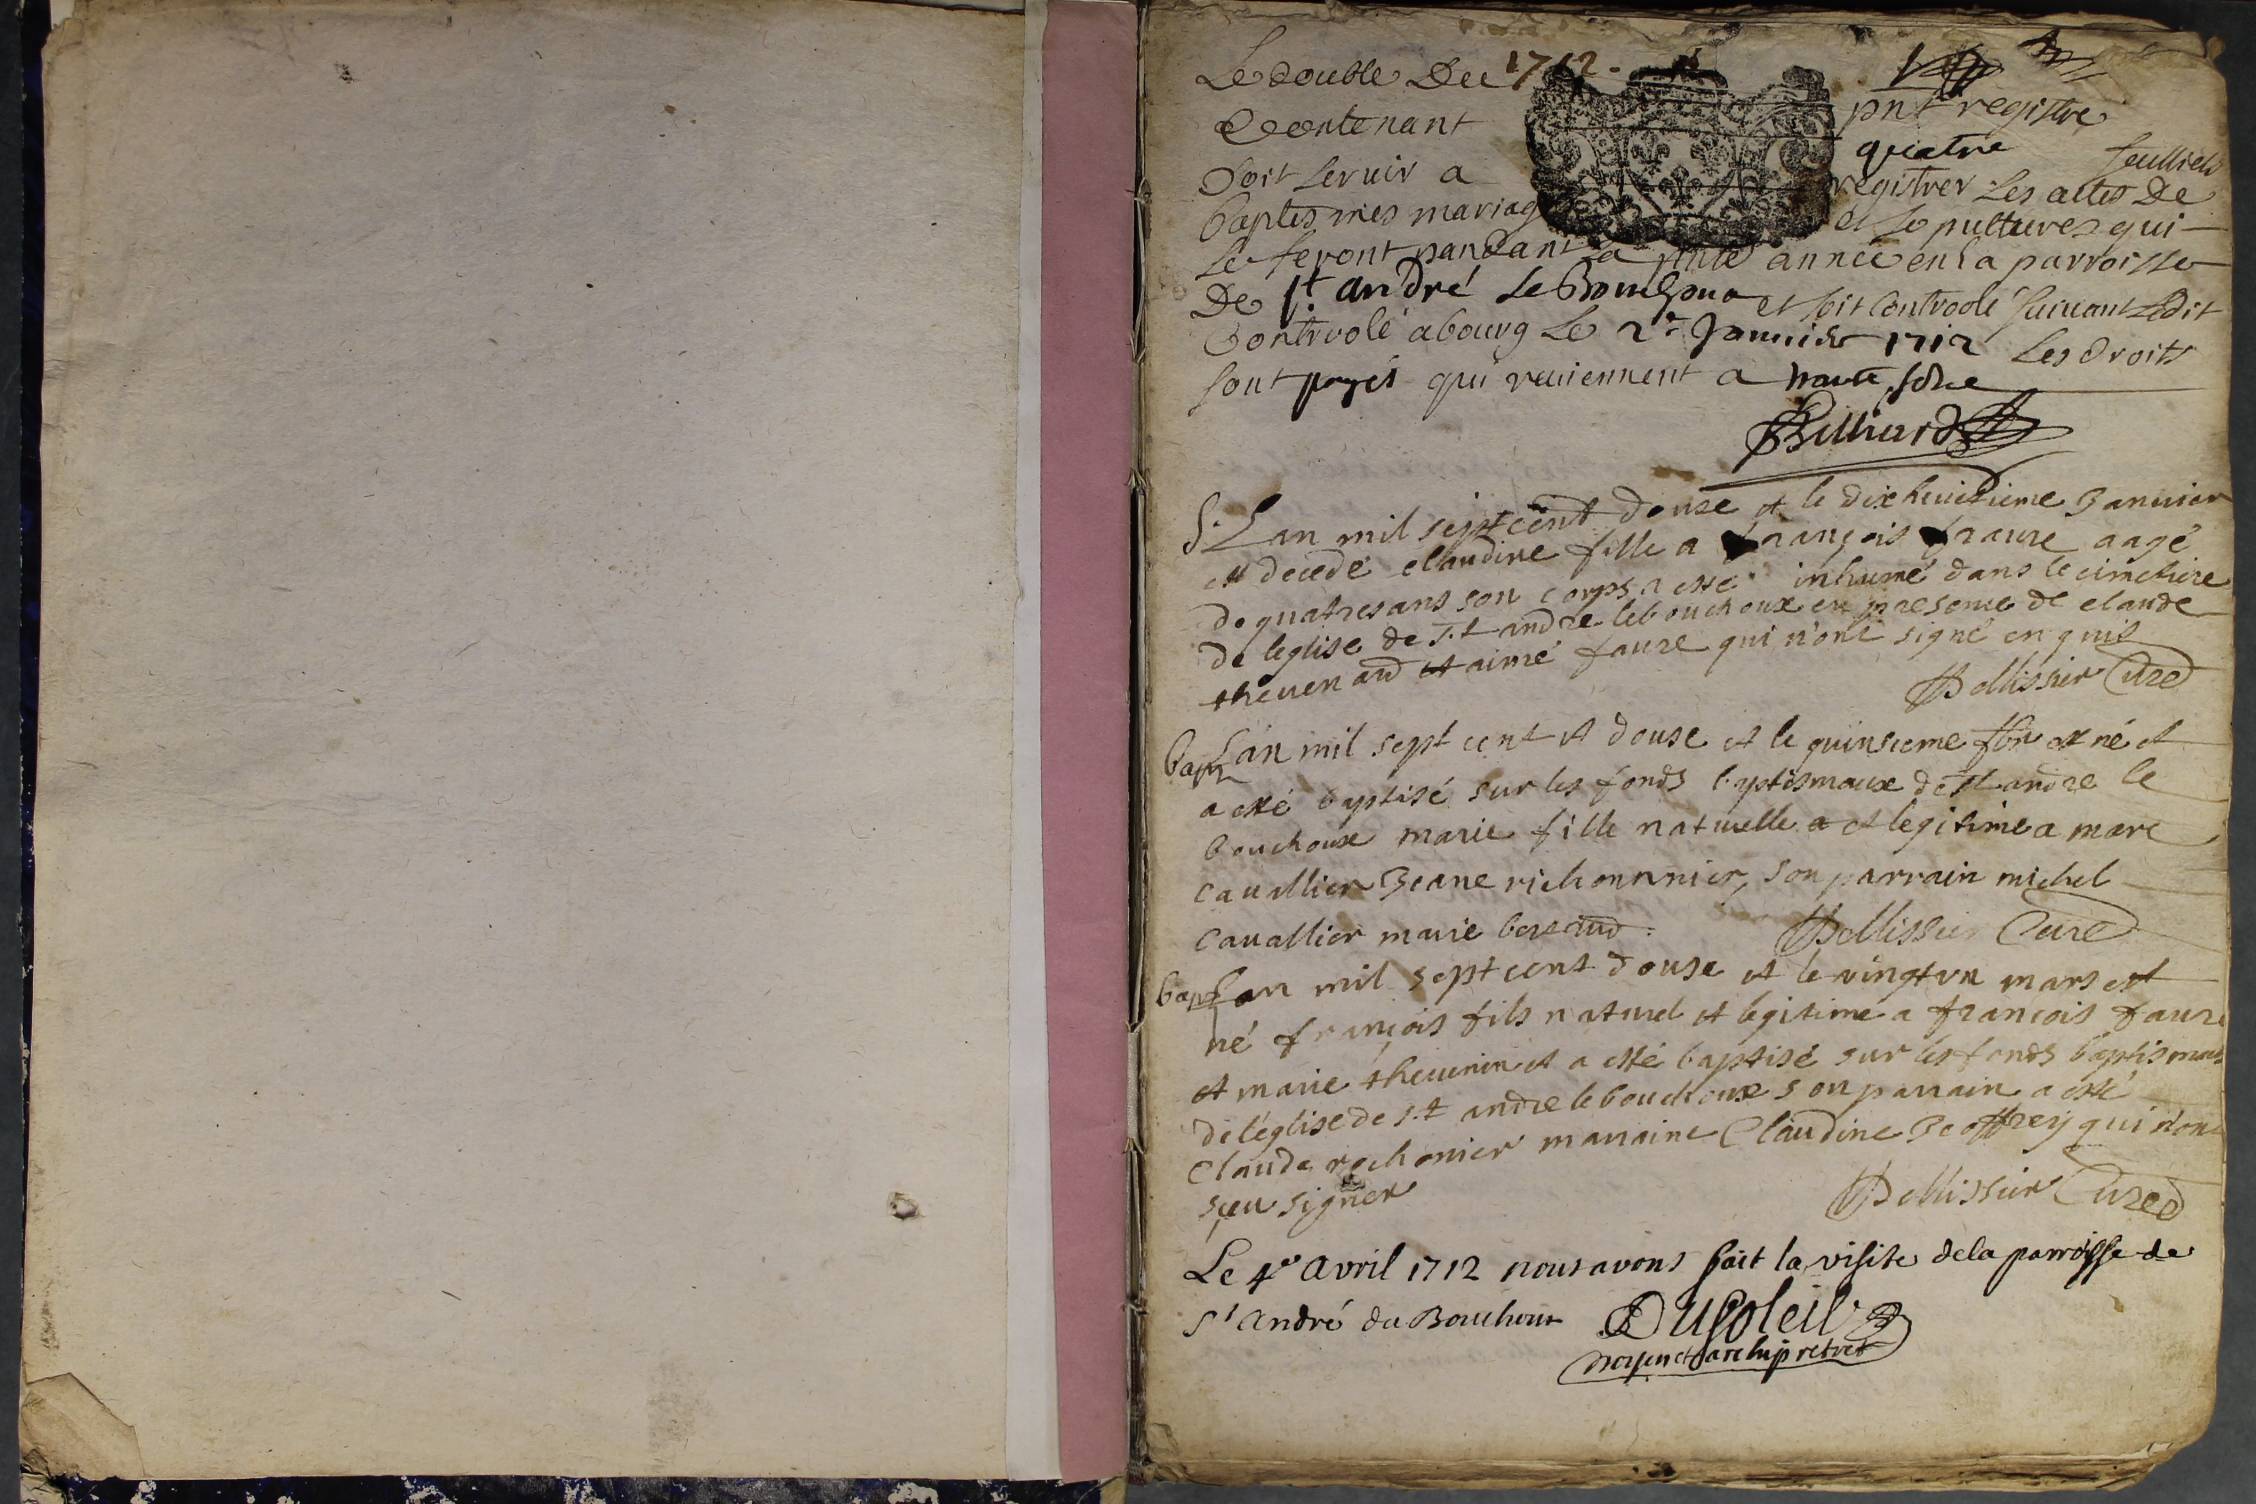 Le double Du 1712. pnt registre
Contenant quatre feulliets
Doit servir a registrer Les actes De
baptesmes mariages et sepultures qui
se feront pandant La pnte année en La parroisse
De St. andré Le Bouchoux et soit Controolé suivant Ledit
Controlé a bourg Le 2e Janvier 1712 Les droits
sont payés qui reuiennent a
Billiard
S. Lan mil sept cent douse et le dix huictieme Januier
est decedé claudine fille a françois faure aagé
de quatres ans son corps a esté inhumé dans le cimetiere
de leglise de s.t andre le bouchoux en presence de claude
theuenard et aimé faure qui n'ont signé enquis
Pellissier Curé
bapt Lan mil sept cent et douse et le quinsieme fbr est né et
a esté baptisé sur les fonds baptismaux de st andre le
bouchoux marie fille naturelle a et legitime a marc
cauallier Jeane richonnnier, son parrain michel
cauallier marie beraud.
Pellissier Curé
bapt Lan mil sept cent douse et le vingt vn mars est
né françois fils naturel et legitime a françois faure
et marie theuenin et a esté baptisé sur les fonds baptismaux
de l'églisede s.t andre le bouchoux son parrain a esté
Claude rochonier marraine Claudine Jeoffrey qui n'ont
sçeu signer
Pellissier Curé
Le 4e avril 1712 nous avons fait la visite dela parroisse de
St André du Bouchoux DuSoleil
doyen et archiprêtre